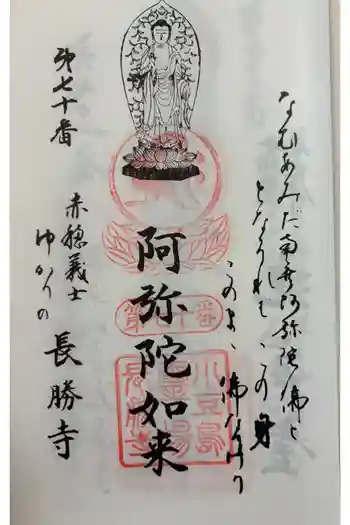 なむあみだ南無阿弥陀佛と
となうれば この身
このまゝ 佛なりけり
阿弥陀如来
第七十番
小豆島
霊場
長勝寺
第七十番
赤穂義士
ゆかりの
長勝寺